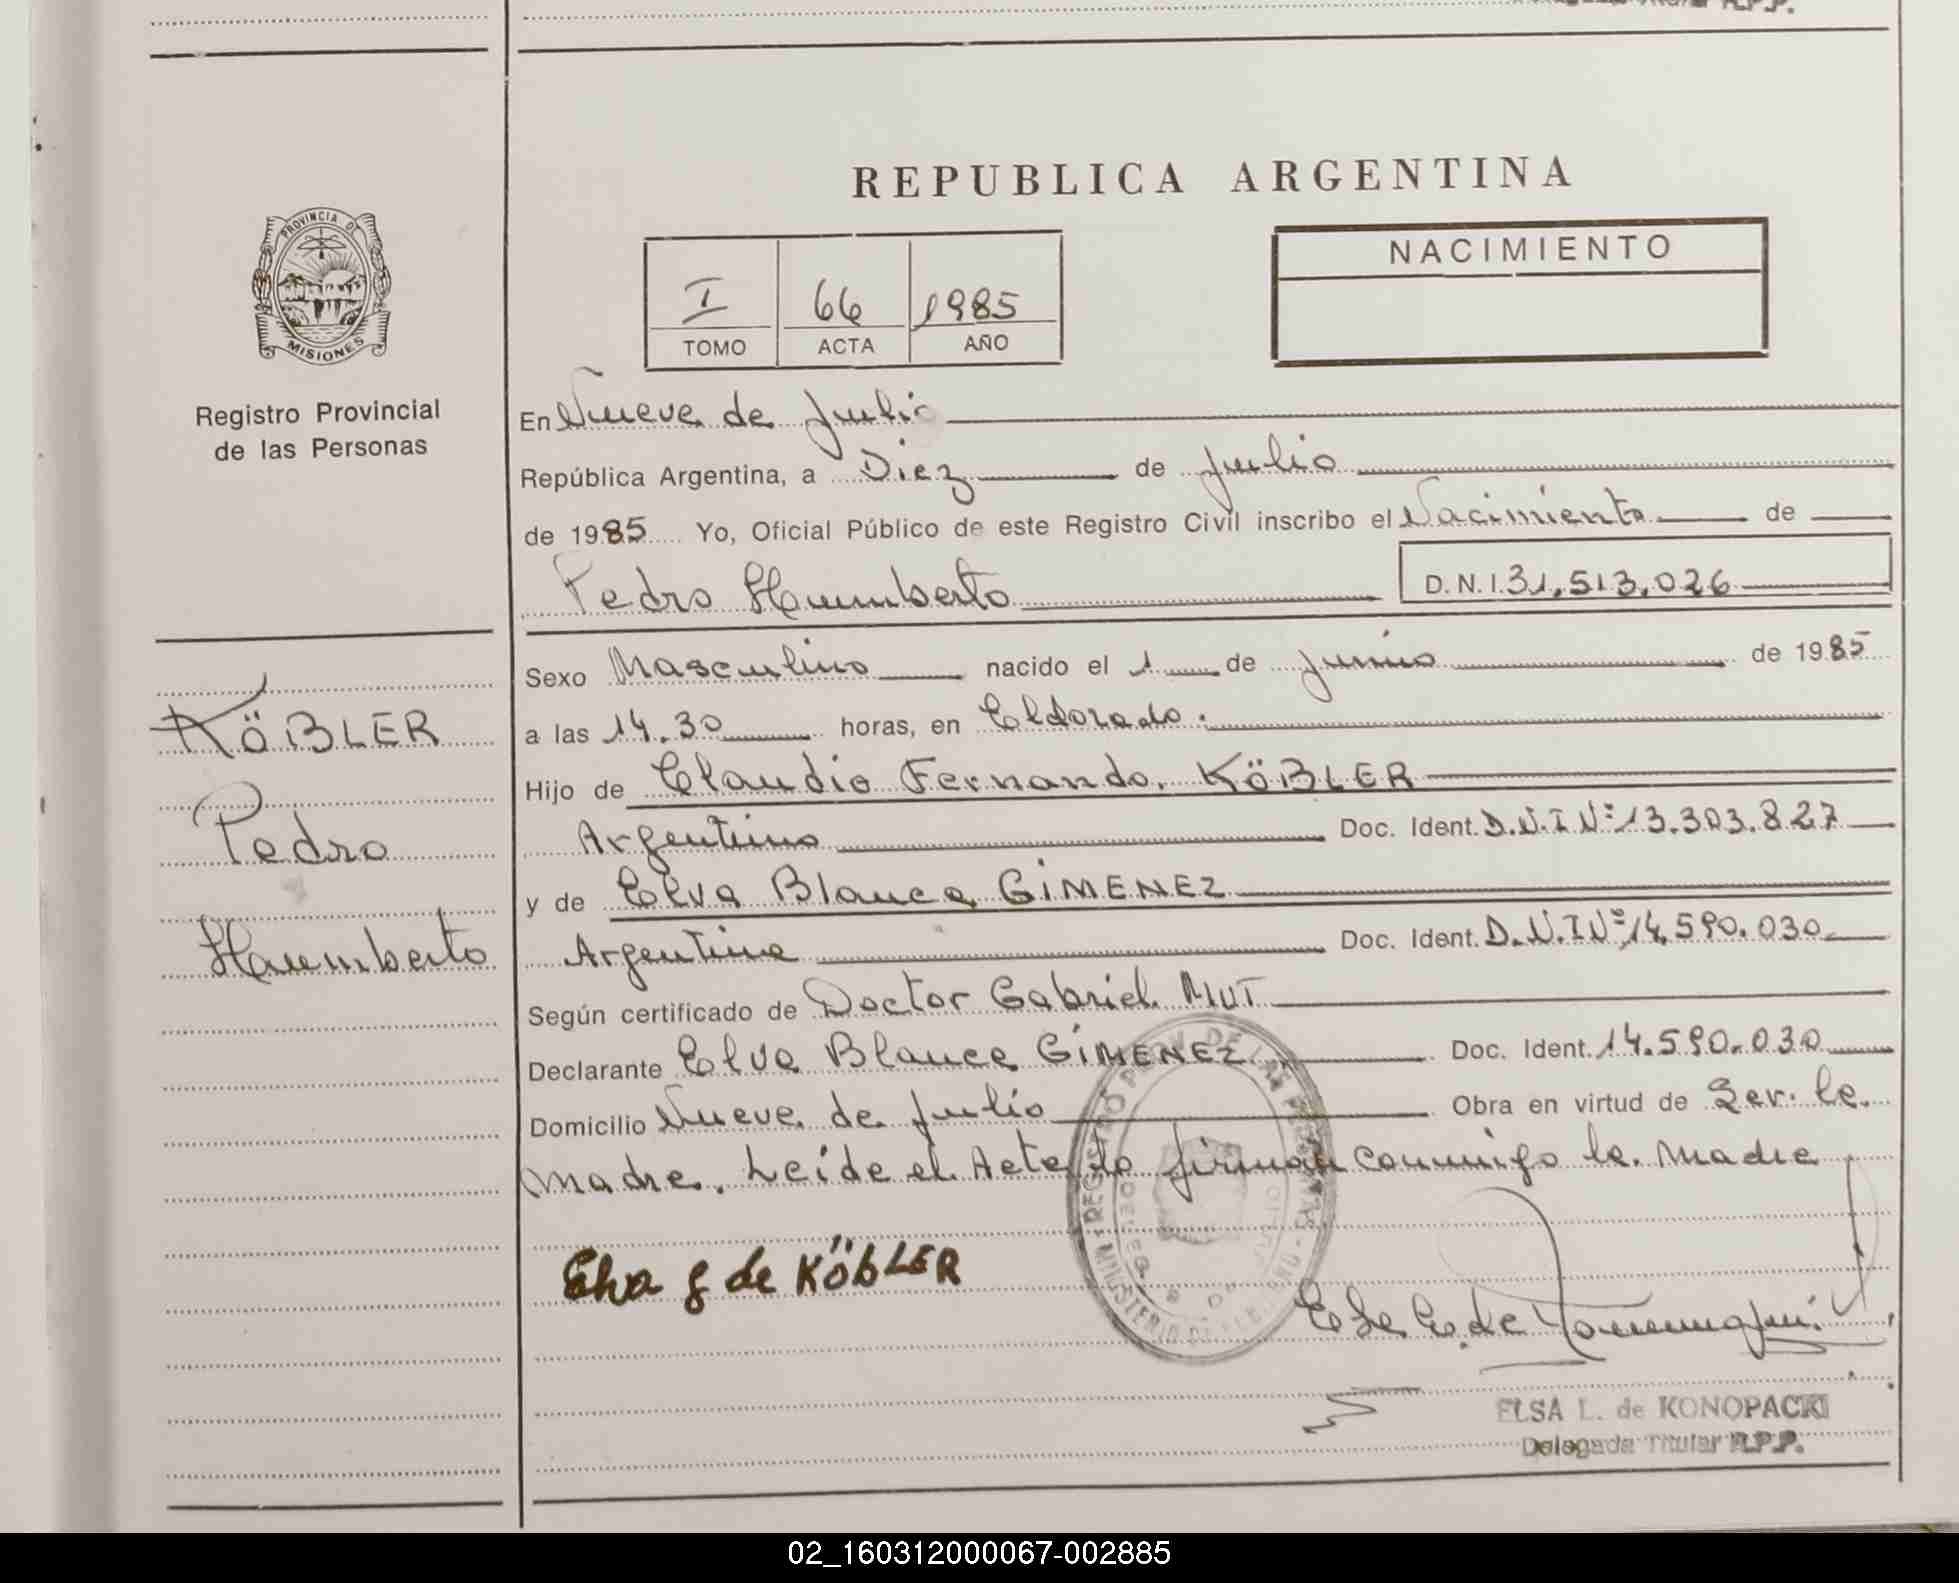 REPUBLICA ARGENTINA
PROVINCIA DE
MISIONES
Registro Provincial
de las Personas
I 66 1985
TOMO ACTA AÑO
NACIMIENTO
En Nueve de Julio
República Argentina, a Diez de Julio
de 1985 Yo, Oficial Público de este Registro Civil inscribo el Nacimiento de
Pedro Humberto D.N.I. 31.513.026
KÖBLER
Pedro
Humberto
Sexo Masculino nacido el 1 de Junio de 1985
a las 14.30 horas, en Eldorado.
Hijo de Claudio Fernando. KÖBLER
Argentino Doc. Ident. D.N.I Nº 13.303.827
y de Elva Blanca GIMENEZ
Argentina Doc. Ident. D.N.I Nº 14.590.030
Según certificado de Doctor Gabriel MUT
Declarante Elva Blanca GIMENEZ Doc. Ident. 14.590.030
Domicilio Nueve de Julio Obra en virtud de Ser la
madre. Leida el Acta la firman conmigo la madre
Elva G de KöbLER
ELSA L. de KONOPACKI
Delegada Titular R.P.P.
02_160312000067-002885